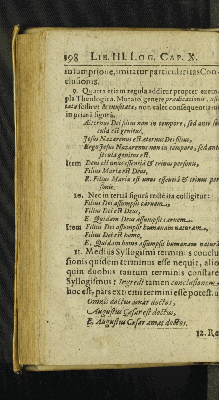 198 LIB. III. LOG. CAP. X.
in sumptione, imitatur particularitas Conclusionis.
9. Quarta etiam regula additur propter exempla Theologica. Mutato genere prædicationis,
in prima figurâ.
Æternus Dei filius non in tempore, sed ante
cula est genitus,
Jesus Nazarenus est æternus Dei filius,
Ergo Jesus Nazarenus non in tempore, sed ante
secula genitus est.
Item Deus est unius essentiæ & trinus personis,
Filius Mariæ est Deus,
E. Filius Mariæ est unius essentiæ & trinus
10. Nec in tertiâ figurâ rectè ita colligitur:
Filius Dei assumpsit carnem,
Filius Dei est Deus,
E. Quidam Deus assumpsit carnem.
Item Filius Dei assumpsit humanam naturam,
Filius Dei est homo,
E. Quidam homo assumpsit humanam
11. Medius Syllogismi terminus conclusionis quidem terminus esse nequit,
quin duobus tantum terminis constare
Syllogismus; Ingredi tamen conclusionem,
hoc est, pars extremi termini esse potest,
Omnis doctus amat doctos,
Augustus Cæsar est doctus,
E. Augustus Cæsar amat doctos.
12.